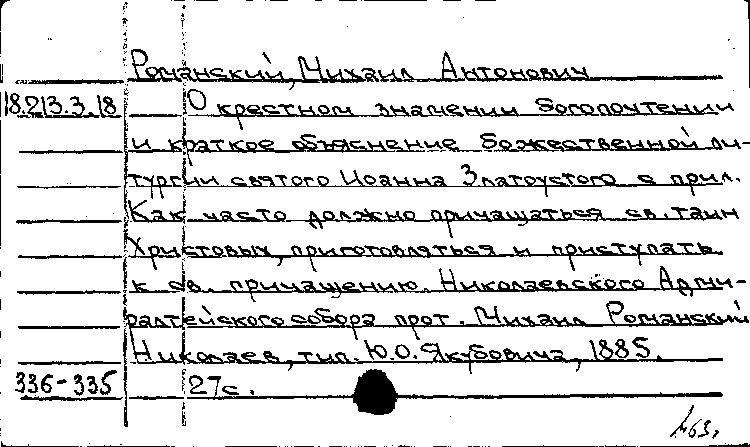 Романский, Михаил Антонович
18.213.3.18 О крестном знамении богопочтении
и краткое объяснение божественной ли-
тургии святого Иоанна Златоустого с прил.
Как часто должно причащаться св. таин
Христовых, приготовляться и приступать
к св. причащению. Николаевского Адми-
ралтейского собора прот. Михаил Романский
Николаев, тип. Ю.О. Якубовича, 1885.
336-335 27с.